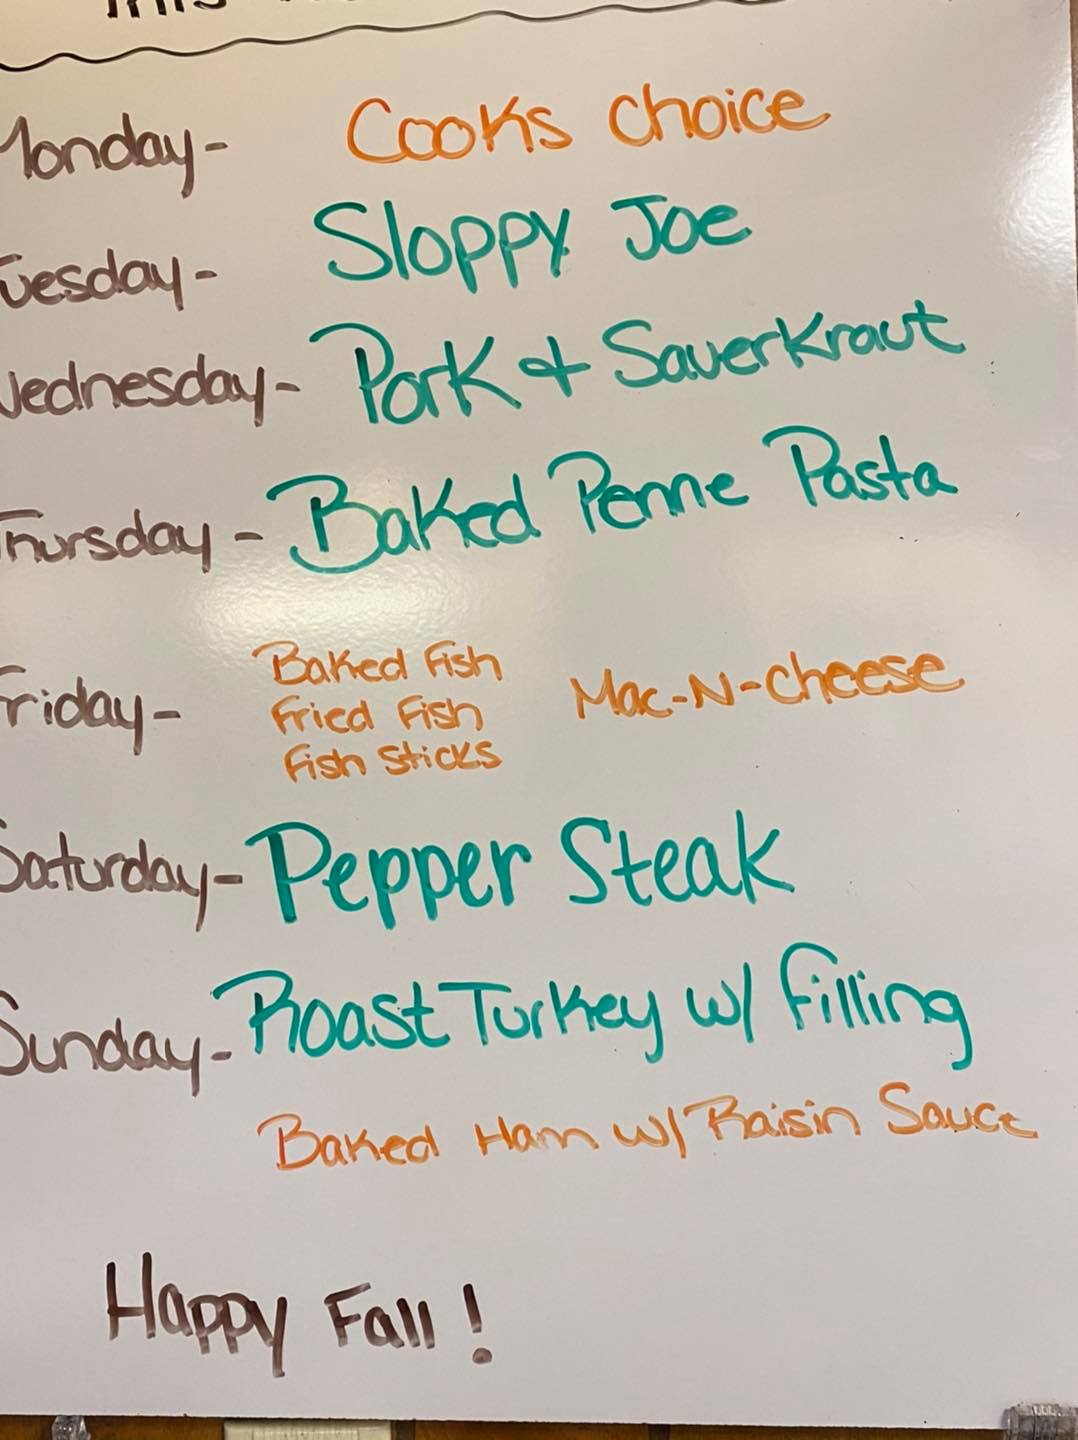 Monday- Cooks choice
Tuesday- Sloppy Joe
Wednesday- Pork & Sauerkraut
Thursday- Baked Penne Pasta
Friday- Baked Fish
Fried Fish Mac-N-cheese
Fish Sticks
Saturday- Pepper Steak
Sunday- Roast Turkey w/ filling
Baked Ham w/ Raisin Sauce
Happy Fall!